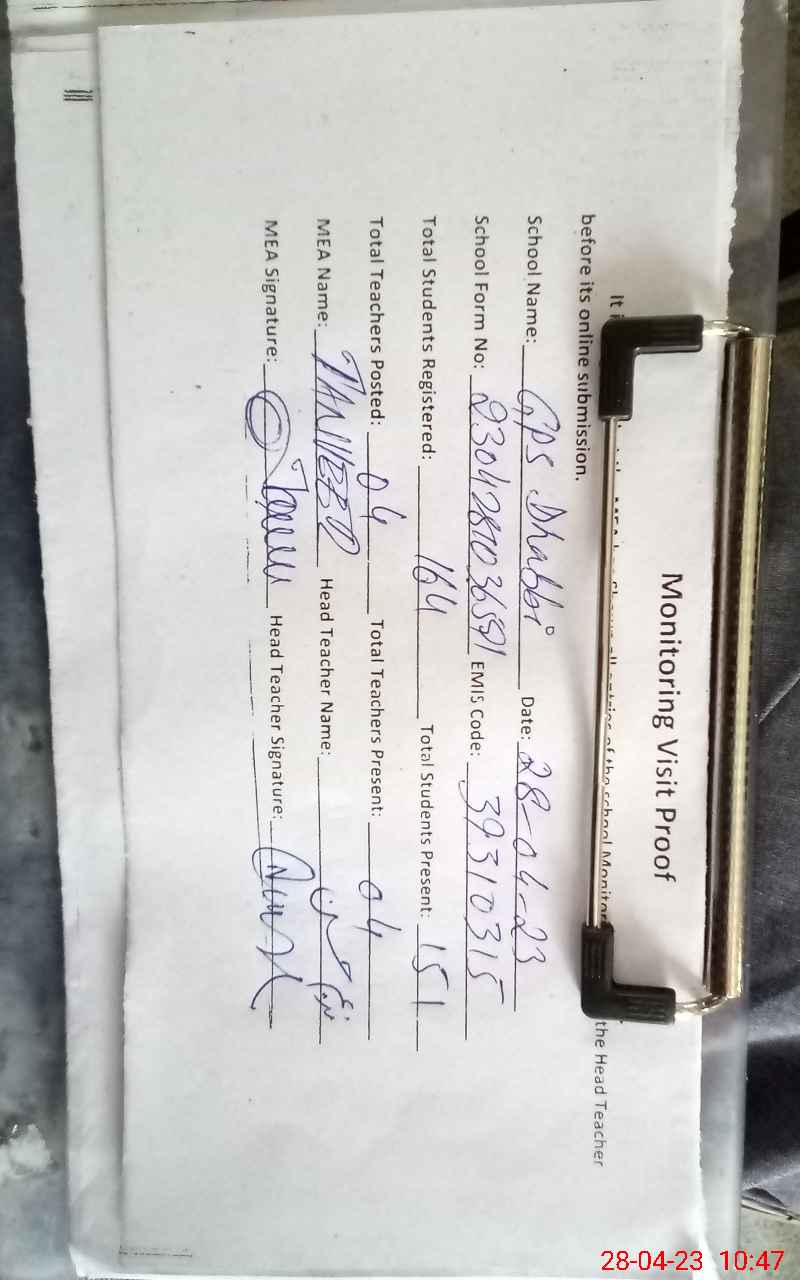 Monitoring Visit Proof
It i
the Head Teacher
before its online submission.
School Name: GPS Dhabbi Date: 28-04-23
School Form No: EMIS Code: 39310315
Total Students Registered: 164 Total Students Present: 151
Total Teachers Posted: 04 Total Teachers Present: 04
MEA Name: TANVEER Head Teacher Name:
MEA Signature: Head Teacher Signature:
28-04-23 10:47